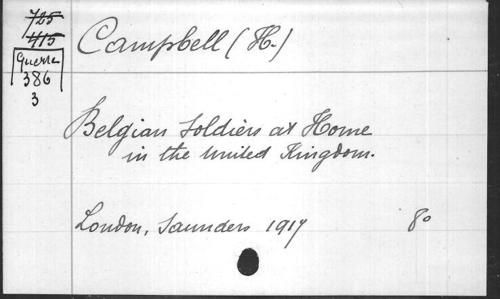 725
415
Guerre
386
3
Campbell (H.)
Belgian Soldiers at Home
in the United Kingdom.
London, Saunders 1917 8º